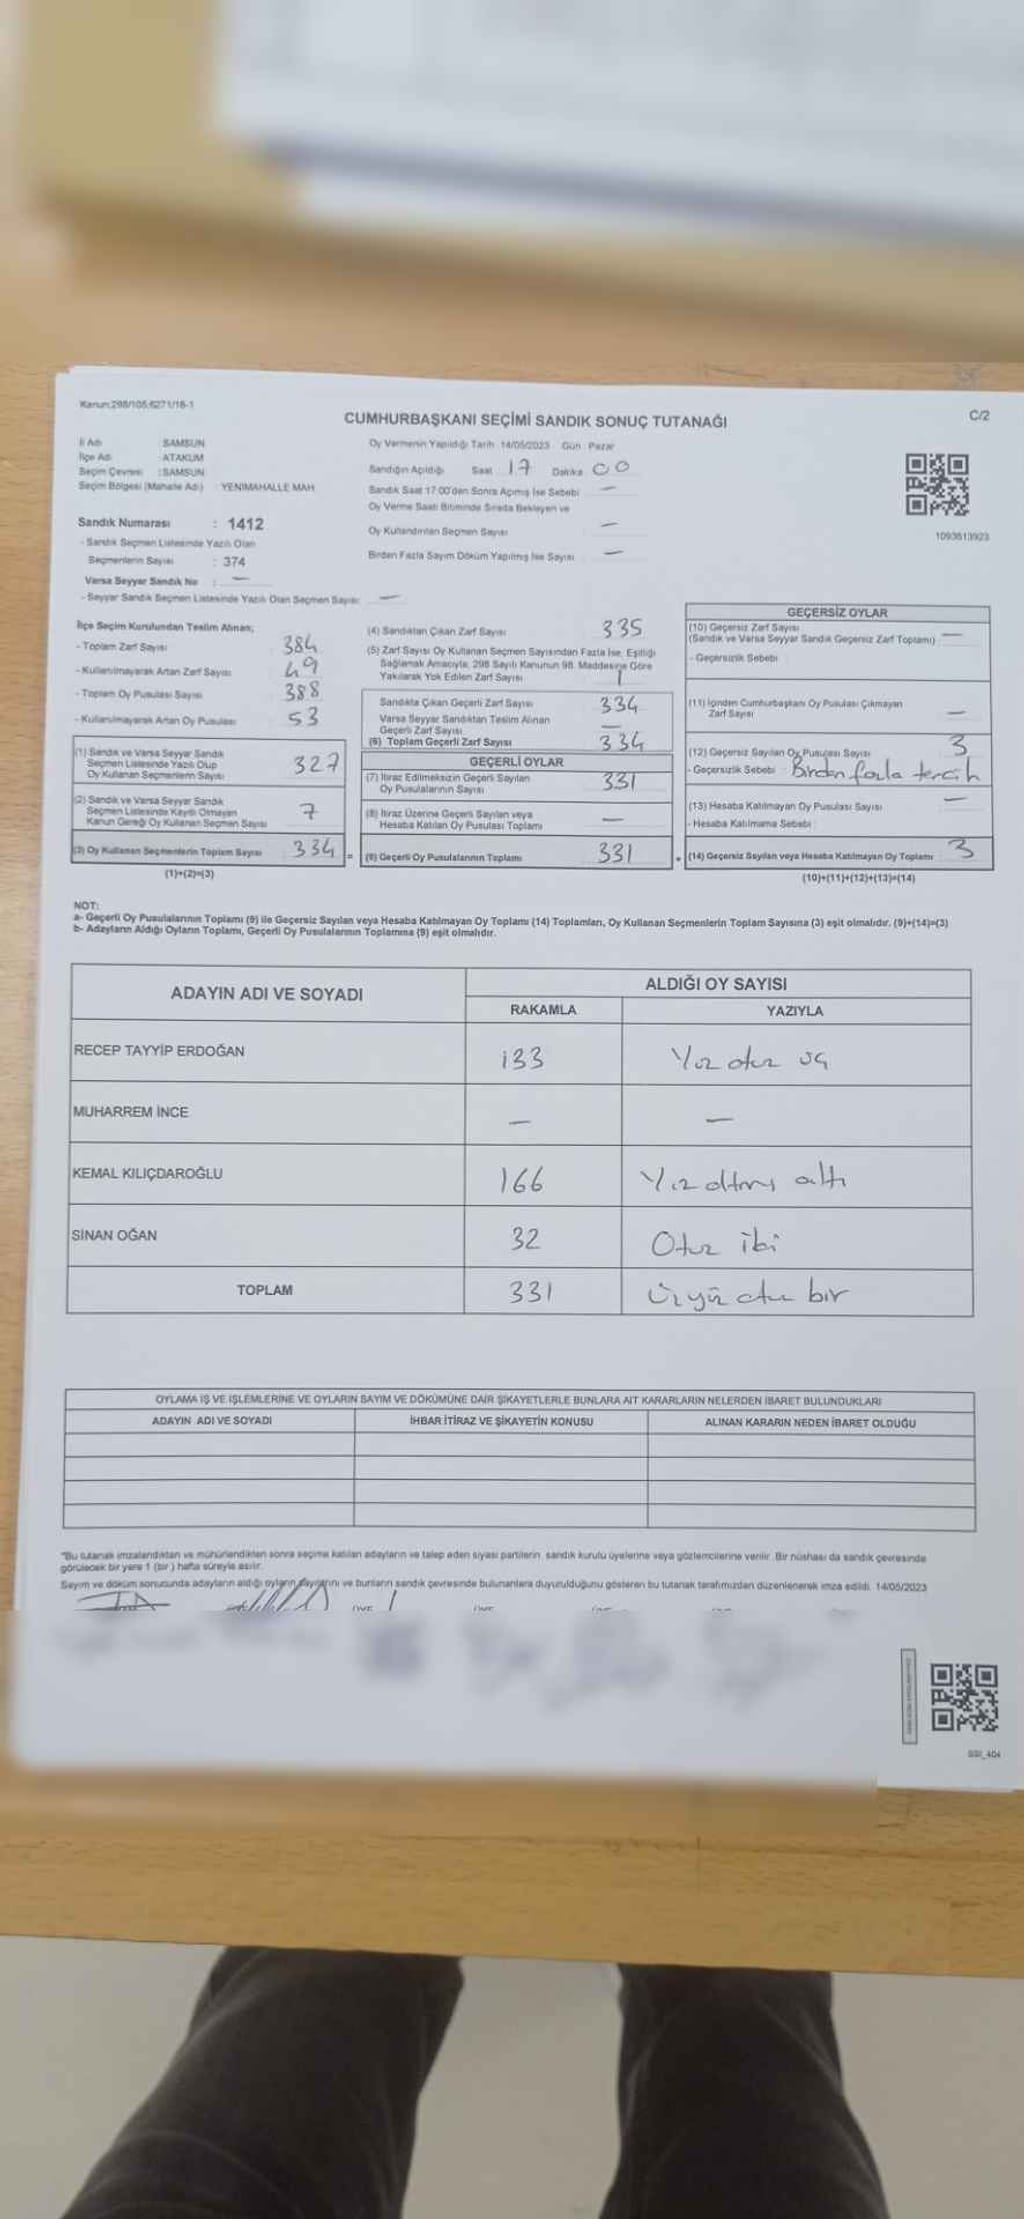 Kanun:298/105,6271/16-1
CUMHURBAŞKANI SEÇİMİ SANDIK SONUÇ TUTANAĞI
C/2
İl Adı : SAMSUN
İlçe Adı : ATAKUM
Seçim Çevresi : SAMSUN
Seçim Bölgesi (Mahalle Adı) : YENİMAHALLE MAH
Sandık Numarası : 1412
- Sandık Seçmen Listesinde Yazılı Olan
Seçmenlerin Sayısı : 374
Varsa Seyyar Sandık No : —
- Seyyar Sandık Seçmen Listesinde Yazılı Olan Seçmen Sayısı —
Oy Vermenin Yapıldığı Tarih: 14/05/2023 Gün: Pazar
Sandığın Açıldığı Saat 17 Dakika 00
Sandık Saat 17:00'den Sonra Açımış İse Sebebi —
Oy Verme Saati Bitiminde Sırada Bekleyen ve
Oy Kullandırılan Seçmen Sayısı —
Birden Fazla Sayım Döküm Yapılmış İse Sayısı —
1093613923
İlçe Seçim Kurulundan Teslim Alınan;
- Toplam Zarf Sayısı 384
- Kullanılmayarak Artan Zarf Sayısı 49
- Toplam Oy Pusulası Sayısı 388
- Kullanılmayarak Artan Oy Pusulası 53
(1) Sandık ve Varsa Seyyar Sandık
Seçmen Listesinde Yazılı Olup
Oy Kullanan Seçmenlerin Sayısı 327
(2) Sandık ve Varsa Seyyar Sandık
Seçmen Listesinde Kaydı Olmayan
Kanun Gereği Oy Kullanan Seçmen Sayısı 7
(3) Oy Kullanan Seçmenlerin Toplam Sayısı 334 =
(1)+(2)=(3)
(4) Sandıktan Çıkan Zarf Sayısı 335
(5) Zarf Sayısı Oy Kullanan Seçmen Sayısından Fazla İse, Eşitliği
Sağlamak Amacıyla, 298 Sayılı Kanunun 98. Maddesine Göre
Yakılarak Yok Edilen Zarf Sayısı 1
Sandıkta Çıkan Geçerli Zarf Sayısı 334
Varsa Seyyar Sandıktan Teslim Alınan
Geçerli Zarf Sayısı —
(6) Toplam Geçerli Zarf Sayısı 334
GEÇERLİ OYLAR
(7) İtiraz Edilmeksizin Geçerli Sayılan
Oy Pusulalarının Sayısı 331
(8) İtiraz Üzerine Geçerli Sayılan veya
Hesaba Katılan Oy Pusulası Toplamı —
(9) Geçerli Oy Pusulalarının Toplamı 331 +
GEÇERSİZ OYLAR
(10) Geçersiz Zarf Sayısı
(Sandık ve Varsa Seyyar Sandık Geçersiz Zarf Toplamı) —
- Geçersizlik Sebebi
(11) İçinden Cumhurbaşkanı Oy Pusulası Çıkmayan
Zarf Sayısı —
(12) Geçersiz Sayılan Oy Pusulası Sayısı 3
- Geçersizlik Sebebi Birden fazla tercih
(13) Hesaba Katılmayan Oy Pusulası Sayısı —
- Hesaba Katılmama Sebebi
(14) Geçersiz Sayılan veya Hesaba Katılmayan Oy Toplamı 3
(10)+(11)+(12)+(13)=(14)
NOT:
a- Geçerli Oy Pusulalarının Toplamı (9) ile Geçersiz Sayılan veya Hesaba Katılmayan Oy Toplamı (14) Toplamları, Oy Kullanan Seçmenlerin Toplam Sayısına (3) eşit olmalıdır. (9)+(14)=(3)
b- Adayların Aldığı Oyların Toplamı, Geçerli Oy Pusulalarının Toplamına (9) eşit olmalıdır.
ADAYIN ADI VE SOYADI
ALDIĞI OY SAYISI
RAKAMLA YAZIYLA
RECEP TAYYİP ERDOĞAN 133 Yüz otuz üç
MUHARREM İNCE — —
KEMAL KILIÇDAROĞLU 166 Yüz altmış altı
SİNAN OĞAN 32 Otuz iki
TOPLAM 331 Üçyüz otuz bir
OYLAMA İŞ VE İŞLEMLERİNE VE OYLARIN SAYIM VE DÖKÜMÜNE DAİR ŞİKAYETLERLE BUNLARA AİT KARARLARIN NELERDEN İBARET BULUNDUKLARI
ADAYIN ADI VE SOYADI İHBAR İTİRAZ VE ŞİKAYETİN KONUSU ALINAN KARARIN NEDEN İBARET OLDUĞU
"Bu tutanak imzalandıktan ve mühürlendikten sonra seçime katılan adayların ve talep eden siyasi partilerin, sandık kurulu üyelerine veya gözlemcilerine verilir. Bir nüshası da sandık çevresinde
görülecek bir yere 1 (bir) hafta süreyle asılır.
Sayım ve döküm sonucunda adayların aldığı oyların sayılarını ve bunların sandık çevresinde bulunanlara duyurulduğunu gösteren bu tutanak tarafımızdan düzenlenerek imza edildi. 14/05/2023
SSI_404